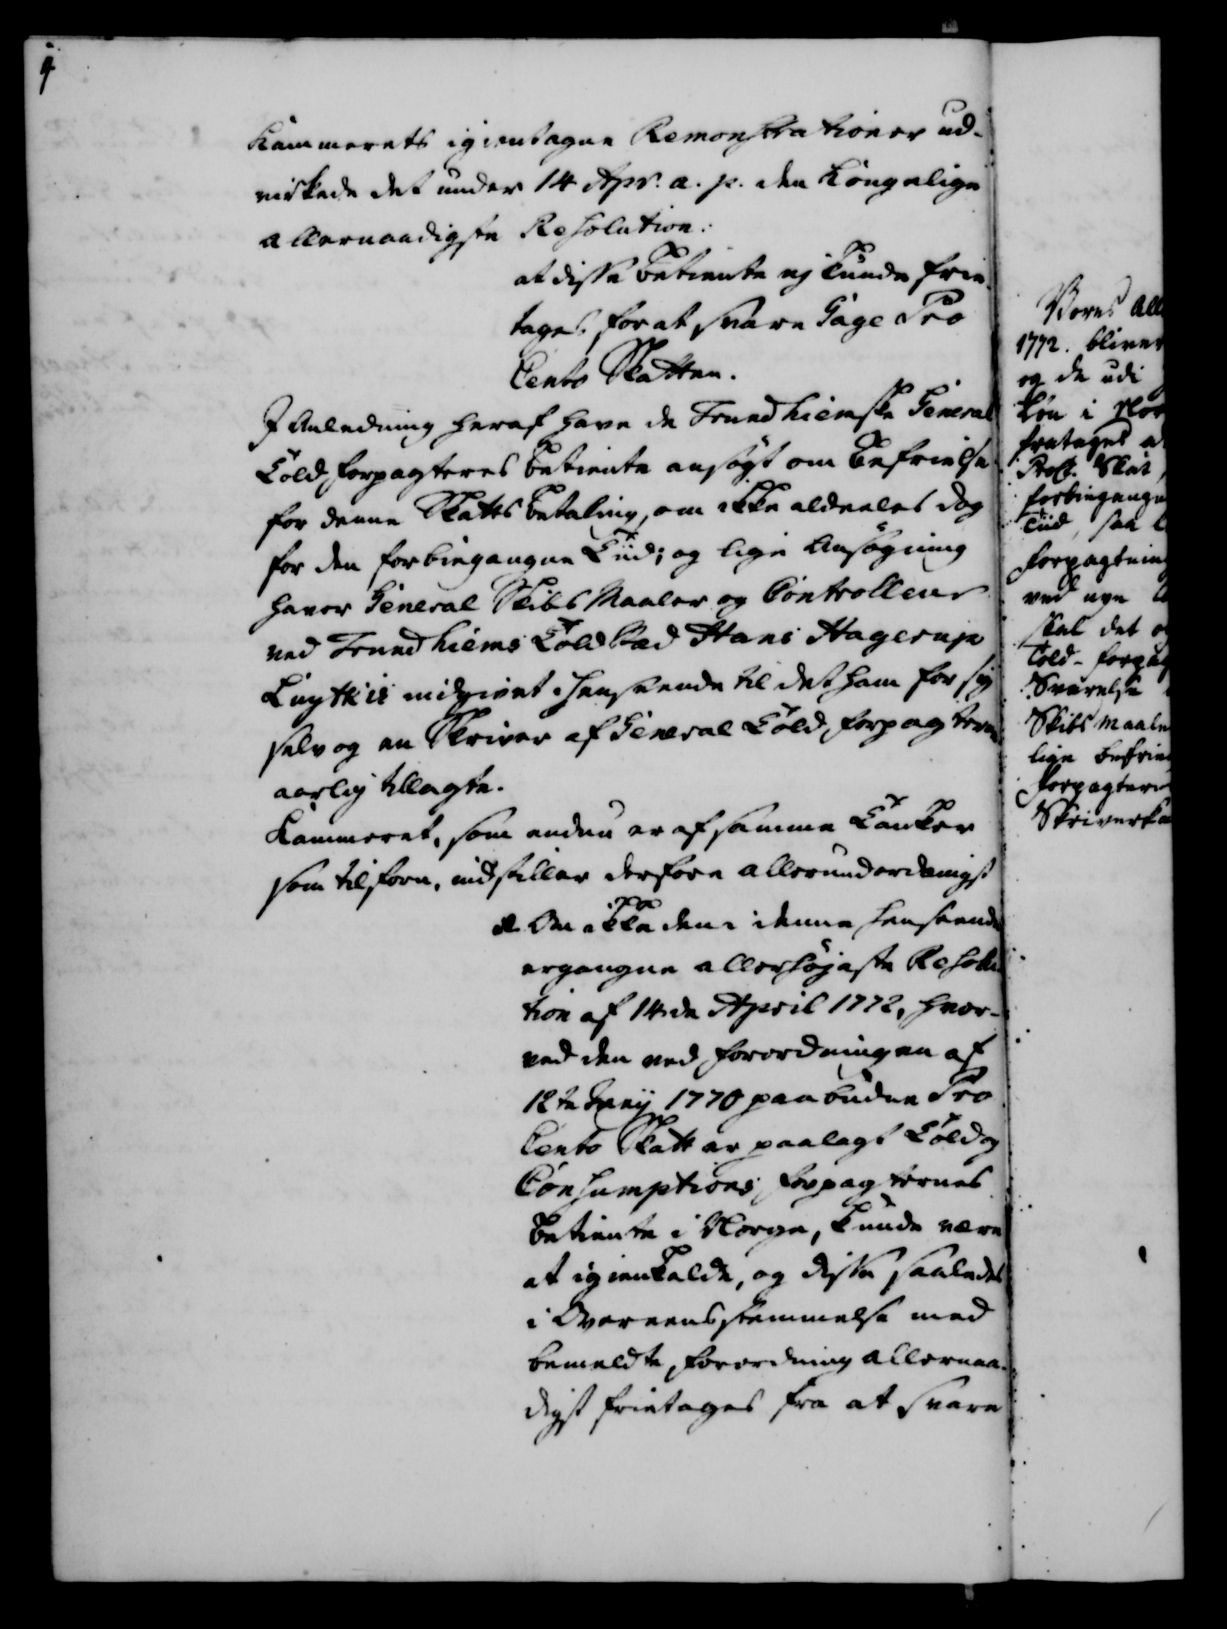 4
Kammerets igientagne Remonstrationer ud-
virkede det under 14 Apr. a. p. den Kongelige
allernaadigste Resolution:
at disse Betiente ej kunde frie
tages for at svare Gage Pro
Cento Skatten.
I Anledning heraf have de Trundhiemske General
Told forpagteres Betiente ansøgt om Befrielse
for denne Skatts Betaling, om ikke aldeeles dog
for den forbiegangne Tiid; og lige Ansøgning
haver General Skibs Maaler og Controlleur
ved Trundhiems Told Sted Hans Hagerup
indgivet i Henseende til det ham for sig
selv og en Skriver af General Told forpagterne
aarlig tillagte.
Kammeret, som endnu er af samme Tanker
som tilforn, indstiller derfore allerunderdanigst
Om ikke den i denne Henseende
ergangne allerhøjeste Resolu
tion af 14de April 1772, hvor-
ved den ved Forordningen af
12te 1770 paabudne Pro
Cento Skatt er paalagt Told og
Consumptions forpagternes
Betiente i Norge, kunde være
at igienkalde, og disse saaledes
i Overeensstemmelse med
bemeldte Forordning allernaa-
digst frietages fra at svare
Vores All
1772. bliver
og de udi
i Nor
frataget a
Skat,
forbiegangne
Tiid, saa
forpagtning
ved nye
skal det o
Told-forpag
Svarelse
Skibs Maale
lige befrie
forpagtere
Skriverka